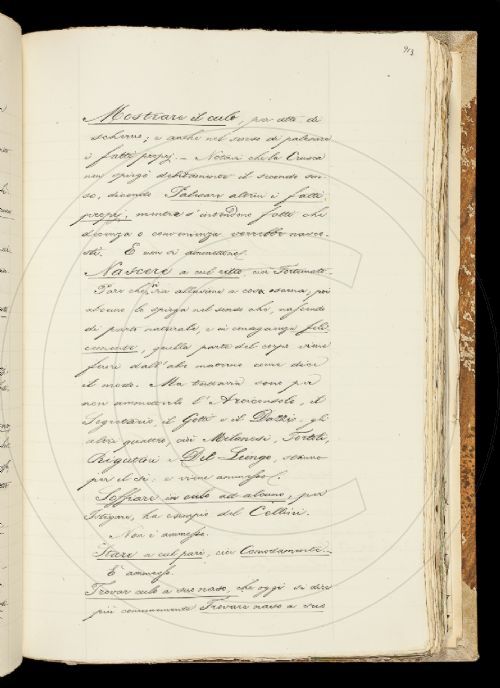 913
Mostrare il culo, per atto di
scherno; e anche nel senso di palesare
i fatti proprj. — Notasi che la Crusca
non spiegò debitamente il secondo sen-
so, dicendo Palesare altrui i fatti
proprj, mentre s'intendono fatti che
decenza o convenienza vorrebbe nasco-
sti. È non si ammettono.
Nascere a cul ritto, cioè Fortunato.
Pare che vi sia allusione a cosa oscena, poi
alcuno lo spiega nel senso che, nascendo
di parto naturale, e in conseguenza feli-
cemente, quella parte del corpo viene
fuori dall'alvo materno come dice
il modo. Ma tuttavia sono per
non ammetterlo l'Arciconsolo, il
Segretario, il Gotti e il Dazzi; gli
altri quattro, cioè Milanesi, Tortoli,
Rigutini e Del Lungo, stanno
per il sì, e viene ammesso.
Soffiare in culo ad alcuno, per
Istigare, ha esempio del Cellini.
Non è ammesso.
Stare a cul pari, cioè Comodamente.
È ammesso.
Trovar culo a suo naso, che oggi si dice
più comunemente Trovare naso a suo